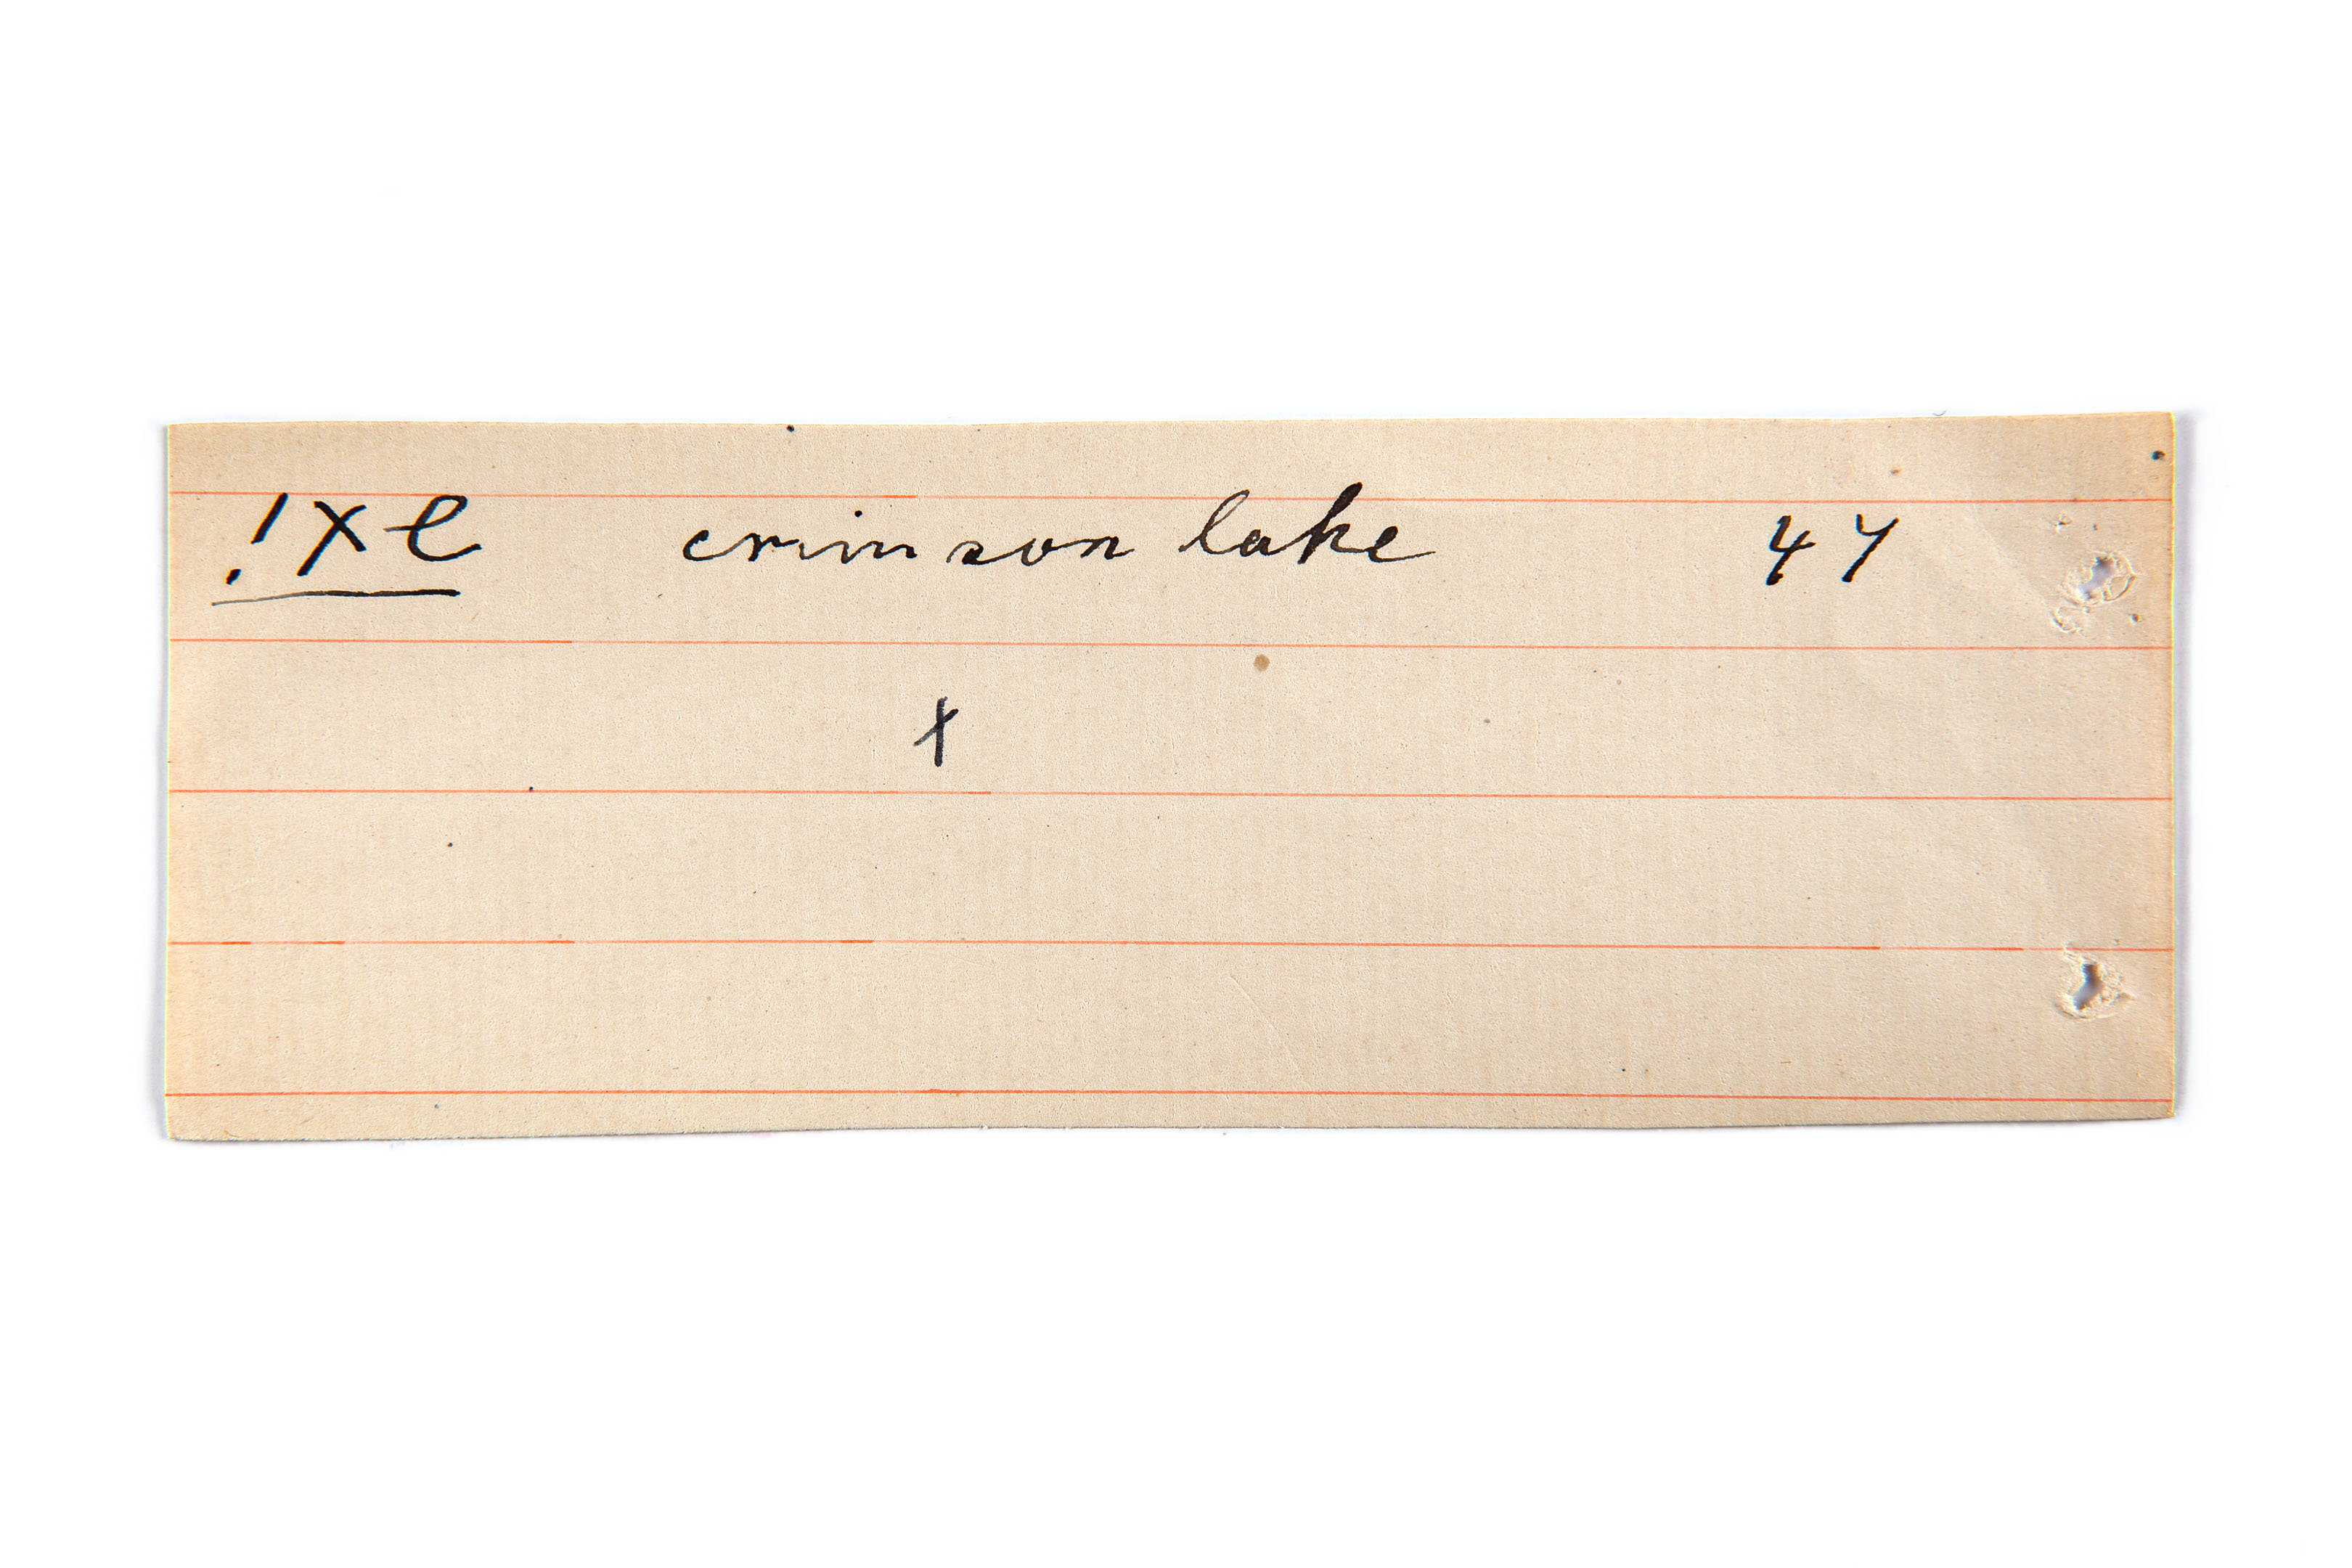 !xe crimson lake 47
x